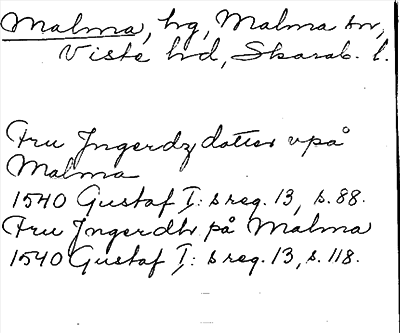 Malma, hg, Malma sn,
Viste hd, Skarab. l.
Fru Jngerdz dotter vpå
Malma
1540 Gustaf I: s reg. 13, s. 88.
Fru Jngerdh på Malma
1540 Gustaf I: s reg. 13, s. 118.